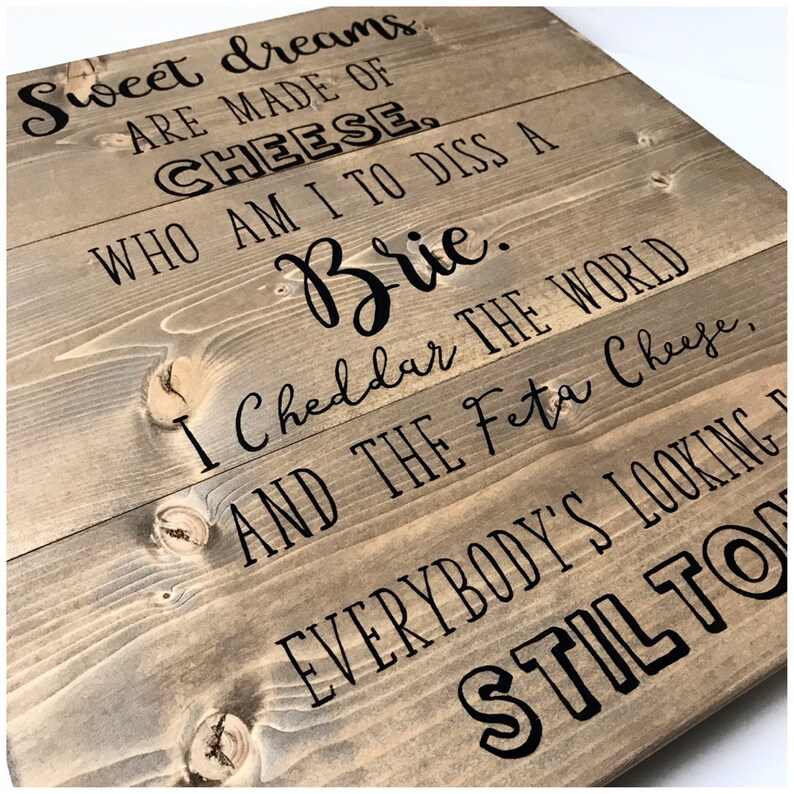 Sweet dreams
ARE MADE OF
CHEESE,
WHO AM I TO DISS A
Brie.
I Cheddar THE WORLD
AND THE Feta Cheese,
EVERYBODY'S LOOKING
STILTON